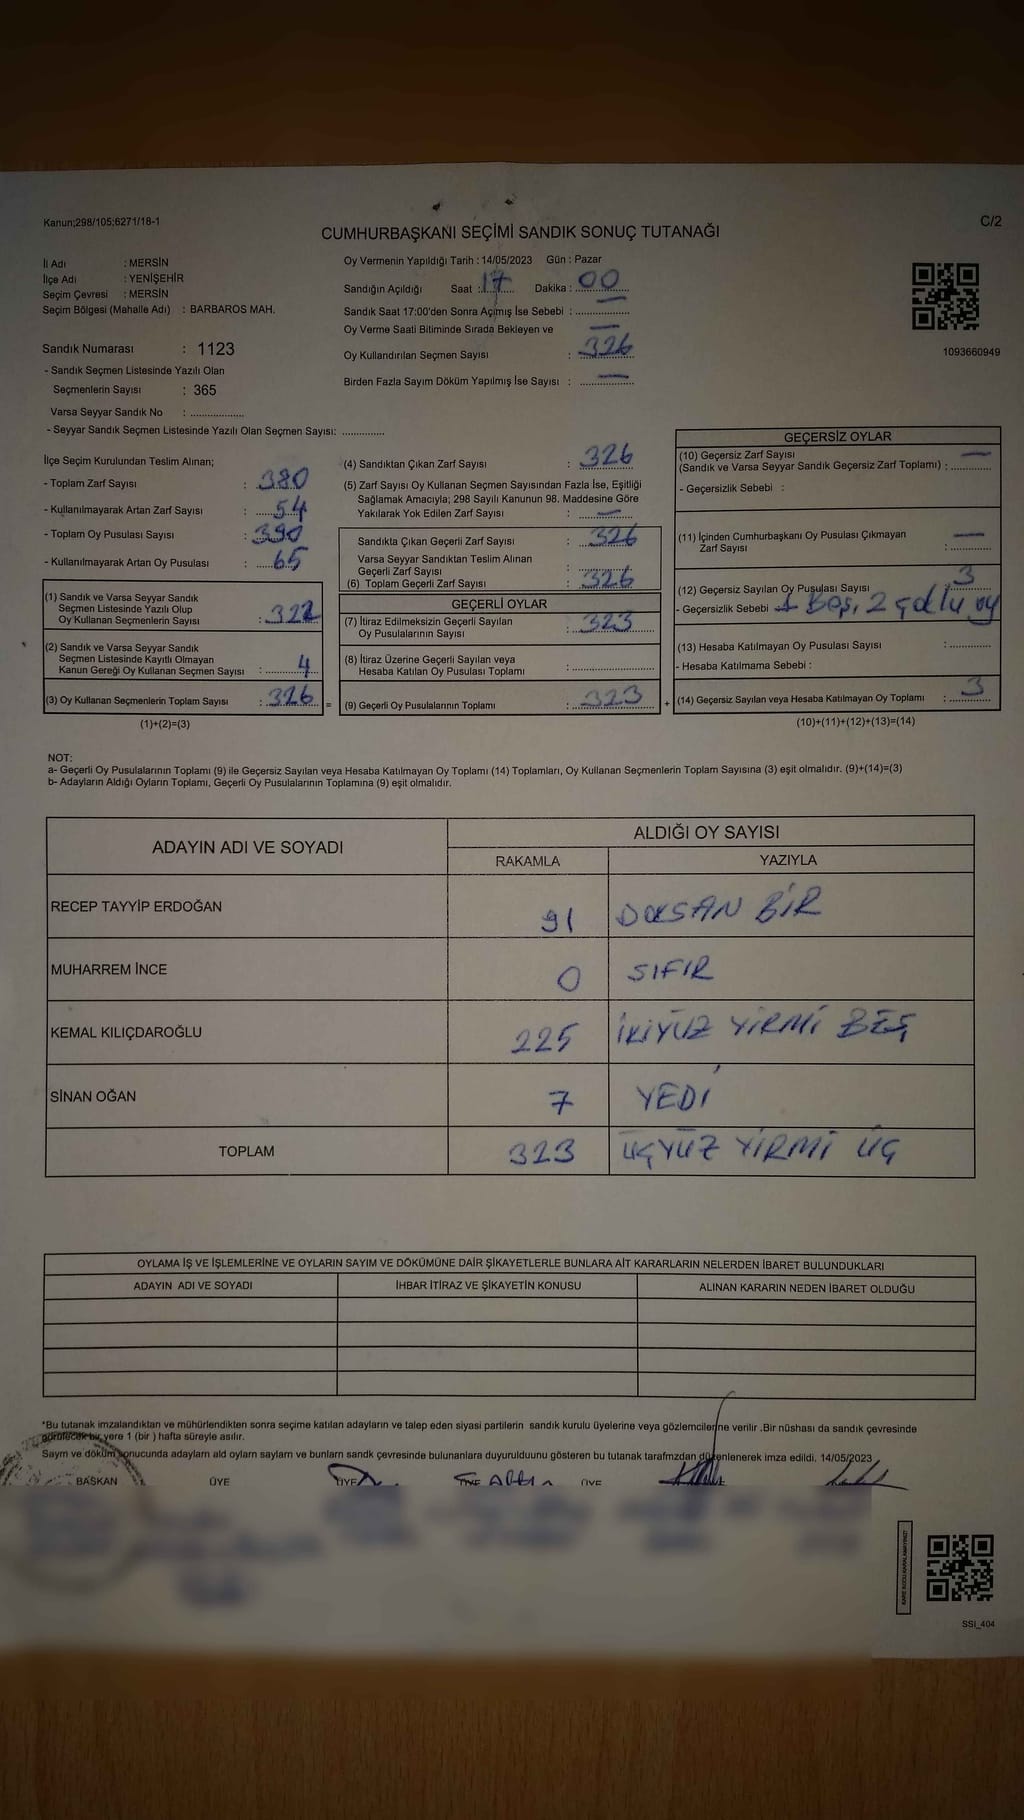 Kanun;298/105;6271/18-1
C/2
CUMHURBAŞKANI SEÇİMİ SANDIK SONUÇ TUTANAĞI
İl Adı : MERSİN
İlçe Adı : YENİŞEHİR
Seçim Çevresi : MERSİN
Seçim Bölgesi (Mahalle Adı) : BARBAROS MAH.
Sandık Numarası : 1123
- Sandık Seçmen Listesinde Yazılı Olan
Seçmenlerin Sayısı : 365
Varsa Seyyar Sandık No : ..................
- Seyyar Sandık Seçmen Listesinde Yazılı Olan Seçmen Sayısı: ..............
Oy Vermenin Yapıldığı Tarih : 14/05/2023 Gün : Pazar
Sandığın Açıldığı Saat : 17 Dakika : 00
Sandık Saat 17:00'den Sonra Açmış İse Sebebi : —
Oy Verme Saati Bitiminde Sırada Bekleyen ve —
Oy Kullandırılan Seçmen Sayısı : 326
Birden Fazla Sayım Döküm Yapılmış İse Sayısı : —
1093660949
İlçe Seçim Kurulundan Teslim Alınan;
- Toplam Zarf Sayısı : 380
- Kullanılmayarak Artan Zarf Sayısı : 54
- Toplam Oy Pusulası Sayısı : 390
- Kullanılmayarak Artan Oy Pusulası : 65
(1) Sandık ve Varsa Seyyar Sandık
Seçmen Listesinde Yazılı Olup
Oy Kullanan Seçmenlerin Sayısı : 322
(2) Sandık ve Varsa Seyyar Sandık
Seçmen Listesinde Kayıtlı Olmayan
Kanun Gereği Oy Kullanan Seçmen Sayısı : 4
(3) Oy Kullanan Seçmenlerin Toplam Sayısı : 326
=
(1)+(2)=(3)
(4) Sandıktan Çıkan Zarf Sayısı : 326
(5) Zarf Sayısı Oy Kullanan Seçmen Sayısından Fazla İse, Eşitliği
Sağlamak Amacıyla; 298 Sayılı Kanunun 98. Maddesine Göre
Yakılarak Yok Edilen Zarf Sayısı : —
Sandıkta Çıkan Geçerli Zarf Sayısı : 326
Varsa Seyyar Sandıktan Teslim Alınan
Geçerli Zarf Sayısı :
(6) Toplam Geçerli Zarf Sayısı : 326
GEÇERLİ OYLAR
(7) İtiraz Edilmeksizin Geçerli Sayılan
Oy Pusulalarının Sayısı : 323
(8) İtiraz Üzerine Geçerli Sayılan veya
Hesaba Katılan Oy Pusulası Toplamı : ....................
(9) Geçerli Oy Pusulalarının Toplamı : 323
+
GEÇERSİZ OYLAR
(10) Geçersiz Zarf Sayısı —
(Sandık ve Varsa Seyyar Sandık Geçersiz Zarf Toplamı) : ............
- Geçersizlik Sebebi :
(11) İçinden Cumhurbaşkanı Oy Pusulası Çıkmayan —
Zarf Sayısı : ............
(12) Geçersiz Sayılan Oy Pusulası Sayısı : 3
- Geçersizlik Sebebi 1 Boş, 2 çoklu oy
(13) Hesaba Katılmayan Oy Pusulası Sayısı : ............
- Hesaba Katılmama Sebebi :
(14) Geçersiz Sayılan veya Hesaba Katılmayan Oy Toplamı : 3
(10)+(11)+(12)+(13)=(14)
NOT:
a- Geçerli Oy Pusulalarının Toplamı (9) ile Geçersiz Sayılan veya Hesaba Katılmayan Oy Toplamı (14) Toplamları, Oy Kullanan Seçmenlerin Toplam Sayısına (3) eşit olmalıdır. (9)+(14)=(3)
b- Adayların Aldığı Oyların Toplamı, Geçerli Oy Pusulalarının Toplamına (9) eşit olmalıdır.
ADAYIN ADI VE SOYADI
ALDIĞI OY SAYISI
RAKAMLA YAZIYLA
RECEP TAYYİP ERDOĞAN 91 DOKSAN BİR
MUHARREM İNCE 0 SIFIR
KEMAL KILIÇDAROĞLU 225 İKİYÜZ YİRMİ BEŞ
SİNAN OĞAN 7 YEDİ
TOPLAM 323 ÜÇYÜZ YİRMİ ÜÇ
OYLAMA İŞ VE İŞLEMLERİNE VE OYLARIN SAYIM VE DÖKÜMÜNE DAİR ŞİKAYETLERLE BUNLARA AİT KARARLARIN NELERDEN İBARET BULUNDUKLARI
ADAYIN ADI VE SOYADI İHBAR İTİRAZ VE ŞİKAYETİN KONUSU ALINAN KARARIN NEDEN İBARET OLDUĞU
*Bu tutanak imzalandıktan ve mühürlendikten sonra seçime katılan adayların ve talep eden siyasi partilerin sandık kurulu üyelerine veya gözlemcilerine verilir .Bir nüshası da sandık çevresinde
görülecek bir yere 1 (bir ) hafta süreyle asılır.
Sayım ve döküm sonucunda adayların ald oyların sayların ve bunların sandk çevresinde bulunanlara duyurulduunu gösteren bu tutanak tarafmzdan düzenlenerek imza edildi. 14/05/2023
BAŞKAN ÜYE ÜYE ÜYE ÜYE
SSI_404